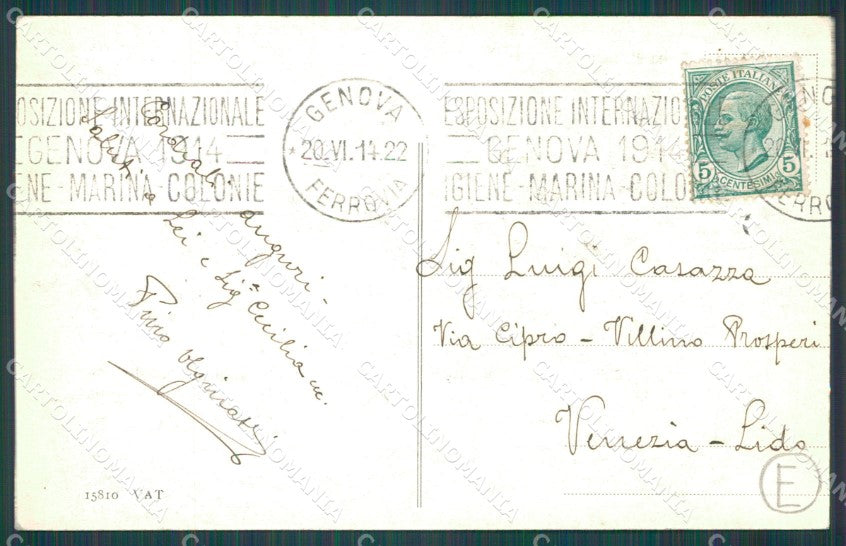 ESPOSIZIONE INTERNAZIONALE
GENOVA 1914
IGIENE - MARINA - COLONIE
GENOVA
20.VI.14.22
FERROVIA
ESPOSIZIONE INTERNAZIO
GENOVA 191
IGIENE - MARINA - COLO
POSTE ITALIANE
5 5
CENTESIMI
Cordiali auguri -
Saluti a Lei e Sigª Cecilia
Pino
Sig Luigi Casazza
Via Cipro - Villino Prosperi
Venezia - Lido
15810 VAT
E
CARTOLINOMANIA